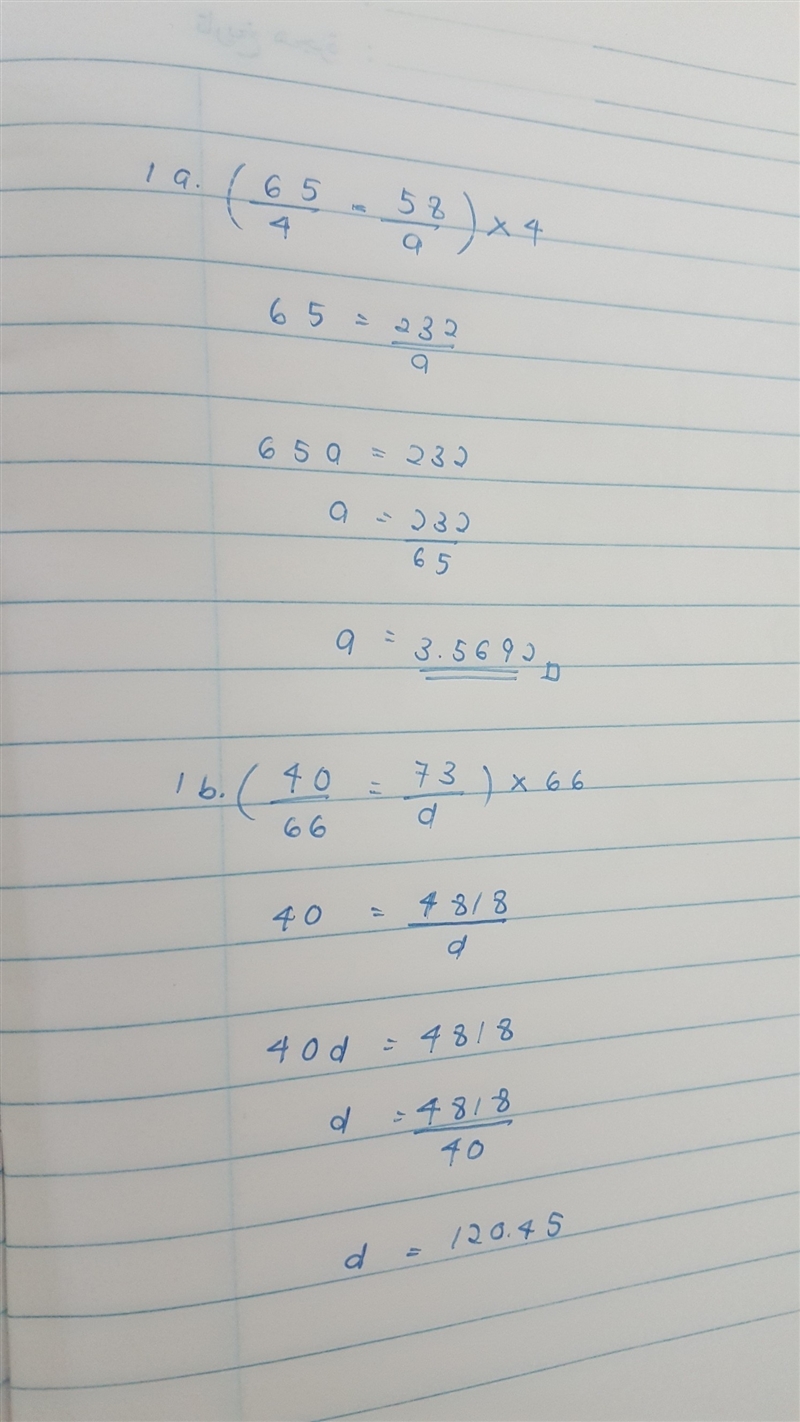 1 a. (65/4 = 58/a) × 4
65 = 232/a
65a = 232
a = 232/65
a = 3.5692
1 b. (40/66 = 73/d) × 66
40 = 4818/d
40d = 4818
d = 4818/40
d = 120.45